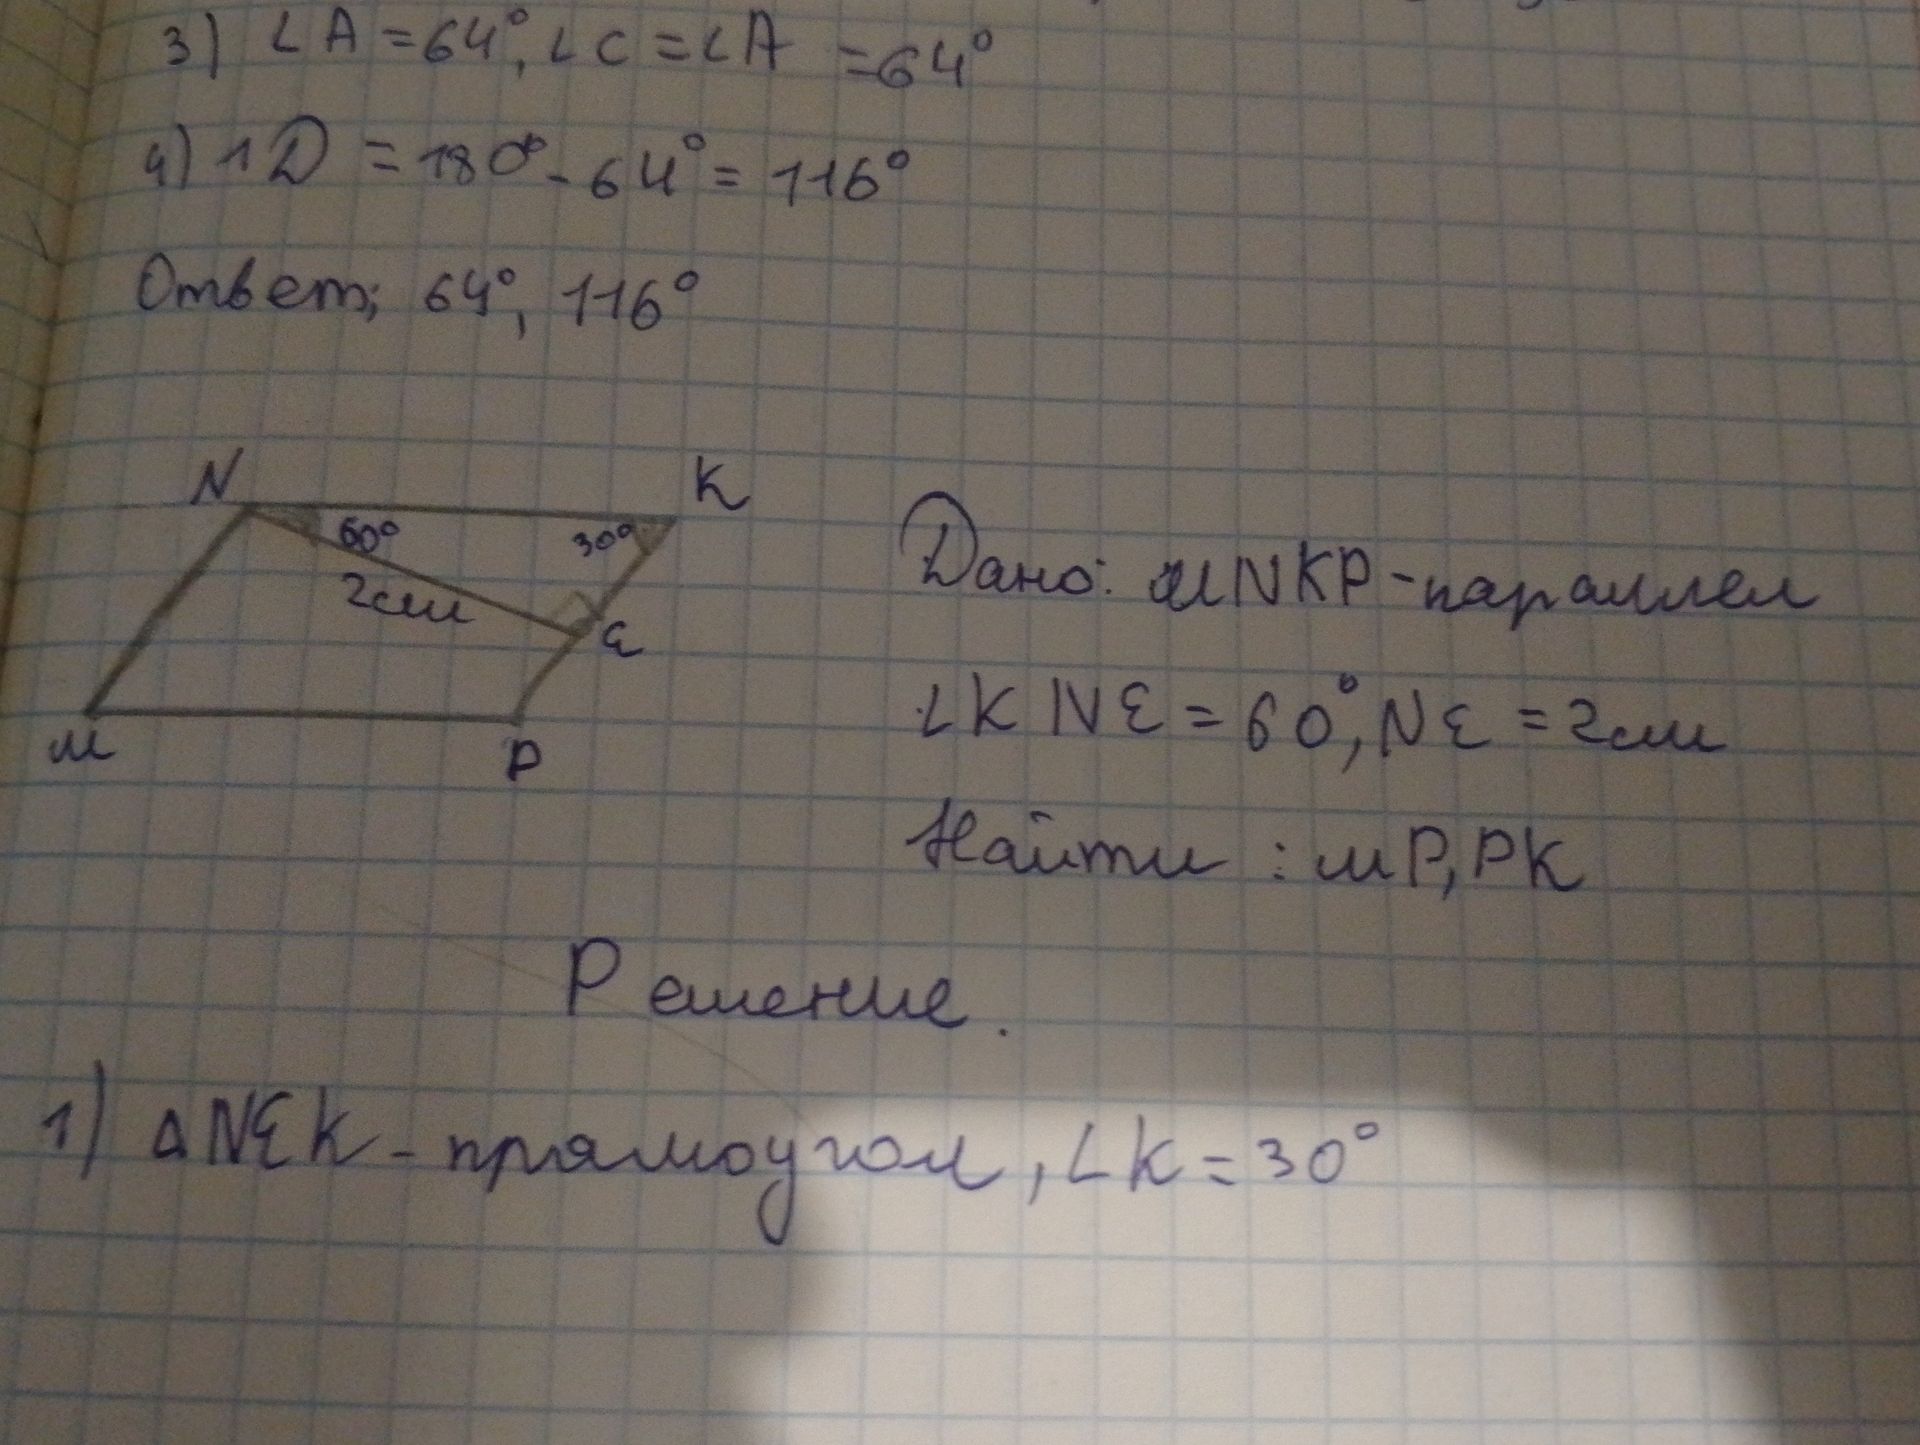 3) ∠A = 64°, ∠C = ∠A = 64°
4) ∠D = 180° - 64° = 116°
Ответ; 64°, 116°
N K
60° 30°
2см
E
M P
Дано: MNKP - параллел
∠KNE = 60°, NE = 2см
Найти : MP, PK
Решение.
1) △NEK - прямоугол, ∠K = 30°